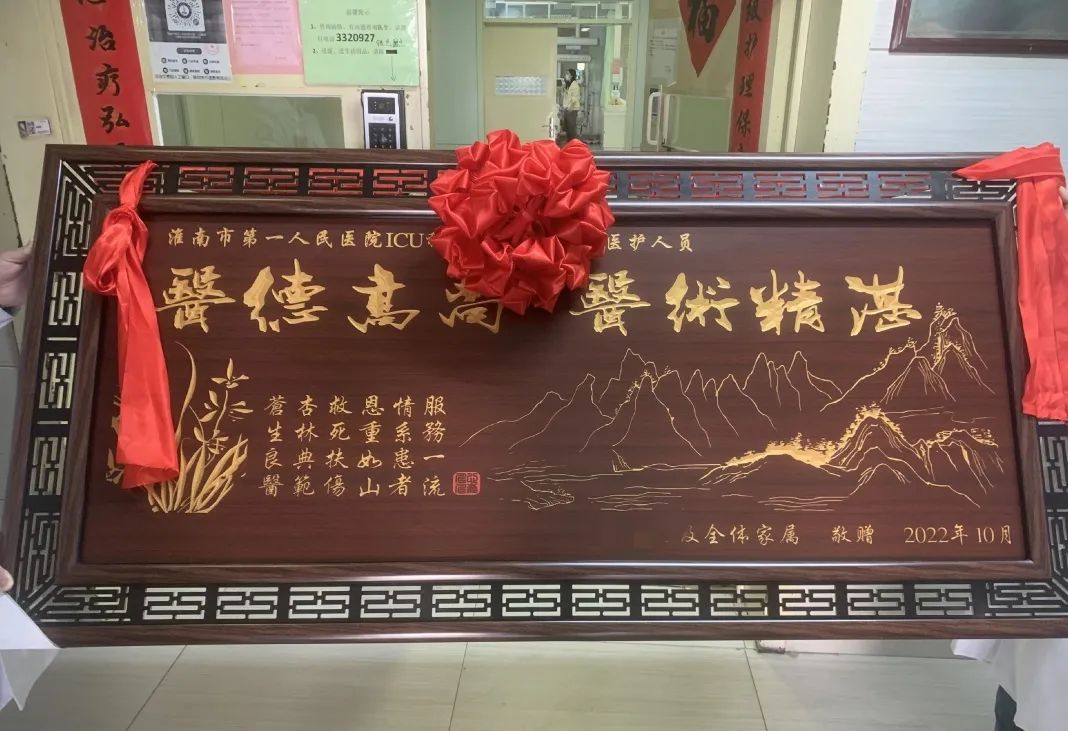 治疗弘
温馨提示
3320927
福
护理保
淮南市第一人民医院ICU
医护人员
醫德高尚 醫術精湛
服務一流
情系患者
恩重如山
救死扶傷
杏林典範
蒼生良醫
及全体家属 敬赠 2022年10月